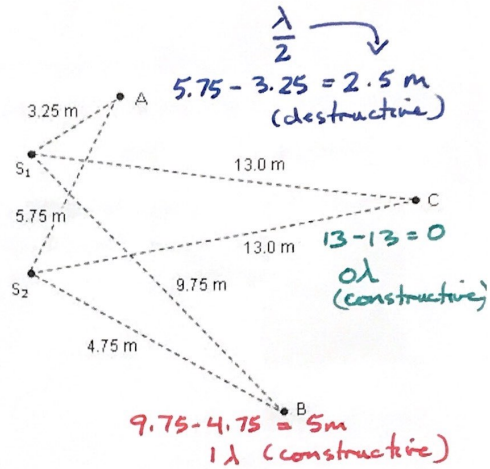 λ/2
5.75 - 3.25 = 2.5 m
(destructive)
3.25 m
A
S₁
13.0 m
5.75 m
C
13.0 m
13-13=0
0λ
(constructive)
S₂
9.75 m
4.75 m
B
9.75-4.75 = 5m
1λ (constructive)